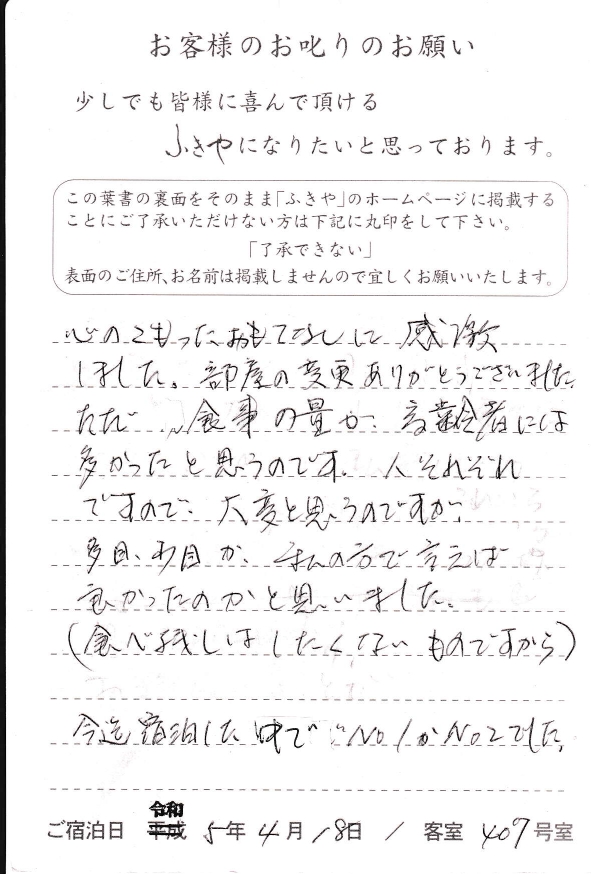 お客様のお叱りのお願い
少しでも皆様に喜んで頂ける
ふきやになりたいと思っております。
この葉書の裏面をそのまま「ふきや」のホームページに掲載する
ことにご了承いただけない方は下記に丸印をして下さい。
「了承できない」
表面のご住所、お名前は掲載しませんので宜しくお願いいたします。
心のこもったおもてなしに感激
しました。部屋の変更ありがとうございました。
ただ、食事の量が、高齢者には
多かったと思うのです。人それぞれ
ですので、大変と思うのですが、
多目、少目か、私の方で言えば
良かったのかと思いました。
(食べ残しはしたくないものですから)
今迄宿泊した中で No1かNo2でした。
令和
ご宿泊日 平成 5年4月18日 / 客室 407号室